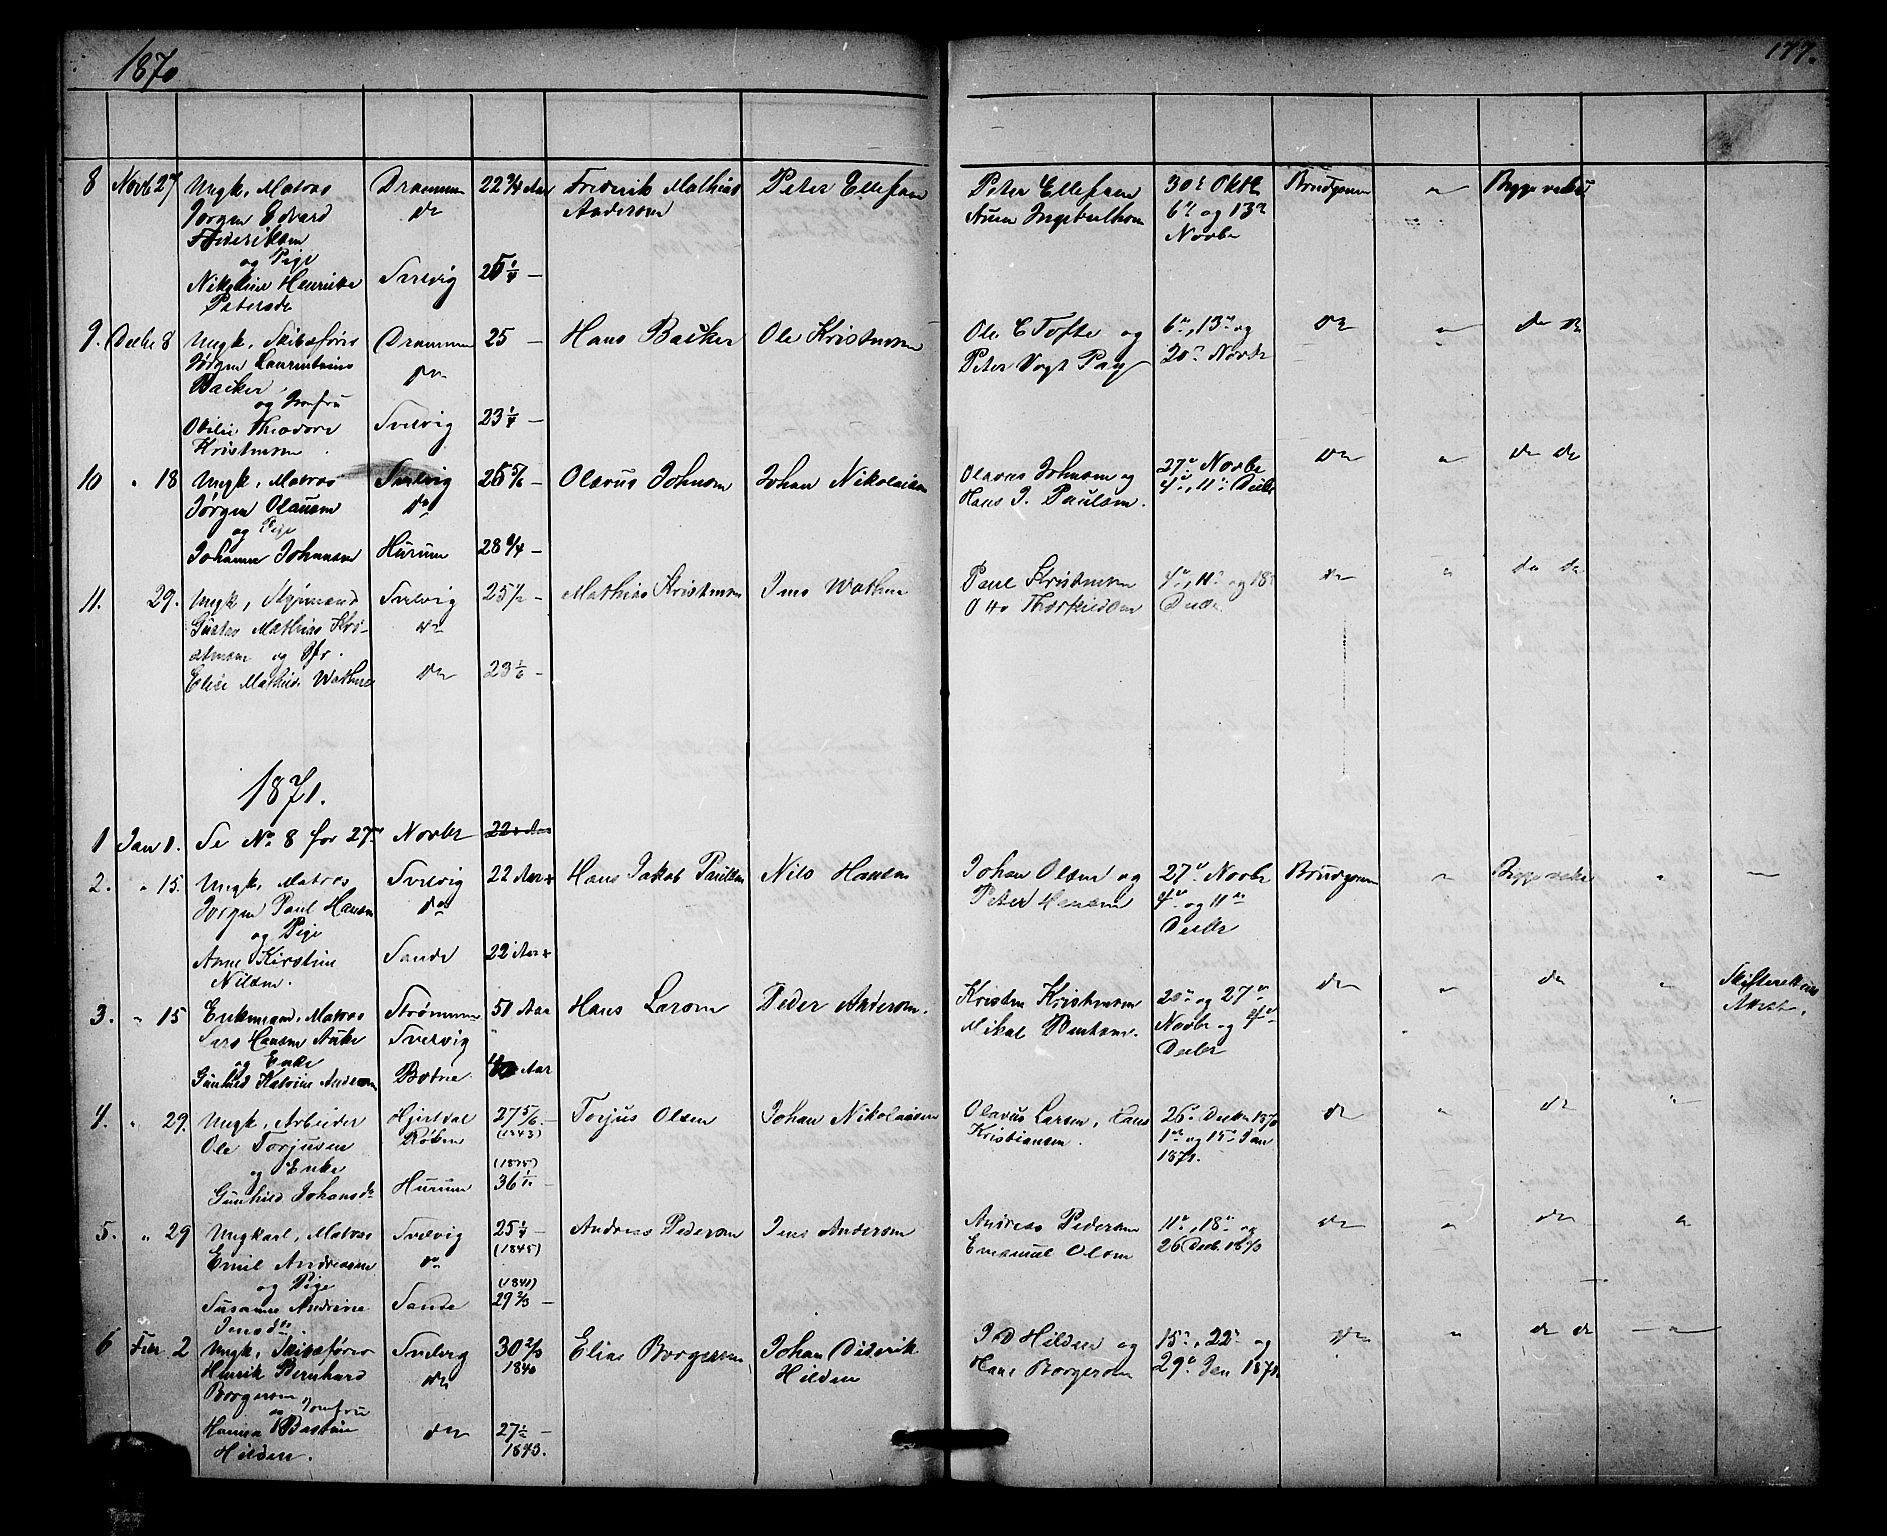 1870
177.
8 Novb 27 Ungk, Matros Drammen 22 3/4 Aar Frederik Mathias Peter Ellefsen Peter Ellefsen 30te Oktb Brudgommen " Begge vakc
Jørgen Edvard do Andersen 6te og 13de
Frederiksen Novbr
og Pige
Nikoline Henrikke Svelvig 25 1/4 —
Petersdr
9. Decbr 8 Ungk, Skibsfører Drammen 25 — Hans Backer Ole Kristensen Ole C Tofte og 6te, 13de og do " do do
Jørgen Laurentzius do Peter Vogt Pay 20de Novbr
Backer
og Jomfru
Otilie Theodore Svelvig 23 1/4 —
Kristensen
10 " 18 Ungk, Matros Svelvig 25 5/6 — Olavus Johnsen Johan Nikolaisen Olavus Johnsen og 27de Novbr do " do do
Jørgen Olausen do Hans J. Paulsen. 4de, 11te Decbr
og Pige
Johanne Johansen Hurum 28 3/4 —
11. 29. Ungk, Styrmand Svelvig 25 1/2 — Mathias Kristensen Jens Wathne Paul Kristensen 4de, 11te og 18 do " do do
Gustav Mathias Kri- do Otto Thorkildsen Decbr
stensen og Jfr.
Elise Mathilde Wathne do 23 1/6 —
1871.
1 Jan 1. Se No 8 for 27de Novbr 22 Aar
2. " 15. Ungk, Matros Svelvig 22 Aar Hans Jakob Paulsen Nils Hansen Johan Olsen og 27de Novbr Brudgommen " Begge vakc " —
Jørgen Paul Hansen do Peter Hansen 4de og 11te
og Pige Decbr
Anne Kirstine Sande 22 Aar
Nilsen.
3. " 15 Enkemand, Matros Strømmen 51 Aar Hans Larsen Peder Andersen. Kristen Kristensen 20de og 27de do " do " Skifterettens
Lars Hansen Auke Svelvig Mikal Bentsen. Novbr og 4de Attest.
og Enke Decbr
Gunhild Katrine Andersen Botne 40 Aar
4. " 29. Ungk, Arbeider Hjertdal 27 5/6 — Torjus Olsen Johan Nikolaisen Olavus Larsen, Hans 26de Decbr 1870 do " do " —
Ole Torjusen Røken (1843) Kristiansen. 1ste og 15de Jan
og Enke (1835) 1871.
Gunhild Johansdr Hurum 36 1/12 —
5. " 29 Ungkarl, Matros Svelvig 25 1/4 — Andreas Pedersen Jens Andersen Andreas Pedersen 11te, 18de og do " do "
Emil Andreasen do (1845) Emanuel Olsen 26 Decb. 1870
og Pige (1841)
Susanne Andrine Sande 29 2/3 —
Jensdtr.
6 Febr 2 Ungk, Skibsfører Svelvig 30 2/3 Elias Borgersen Johan Diderik J D Hilden og 15de, 22de og do " do do — " —
Henrik Bernhard do 1840 Hilden Hans Borgersen 29de Jan 1871.
Borgersen
og Jomfru
Hanna Bastine do 27 1/2 —
Hilden. 1843.